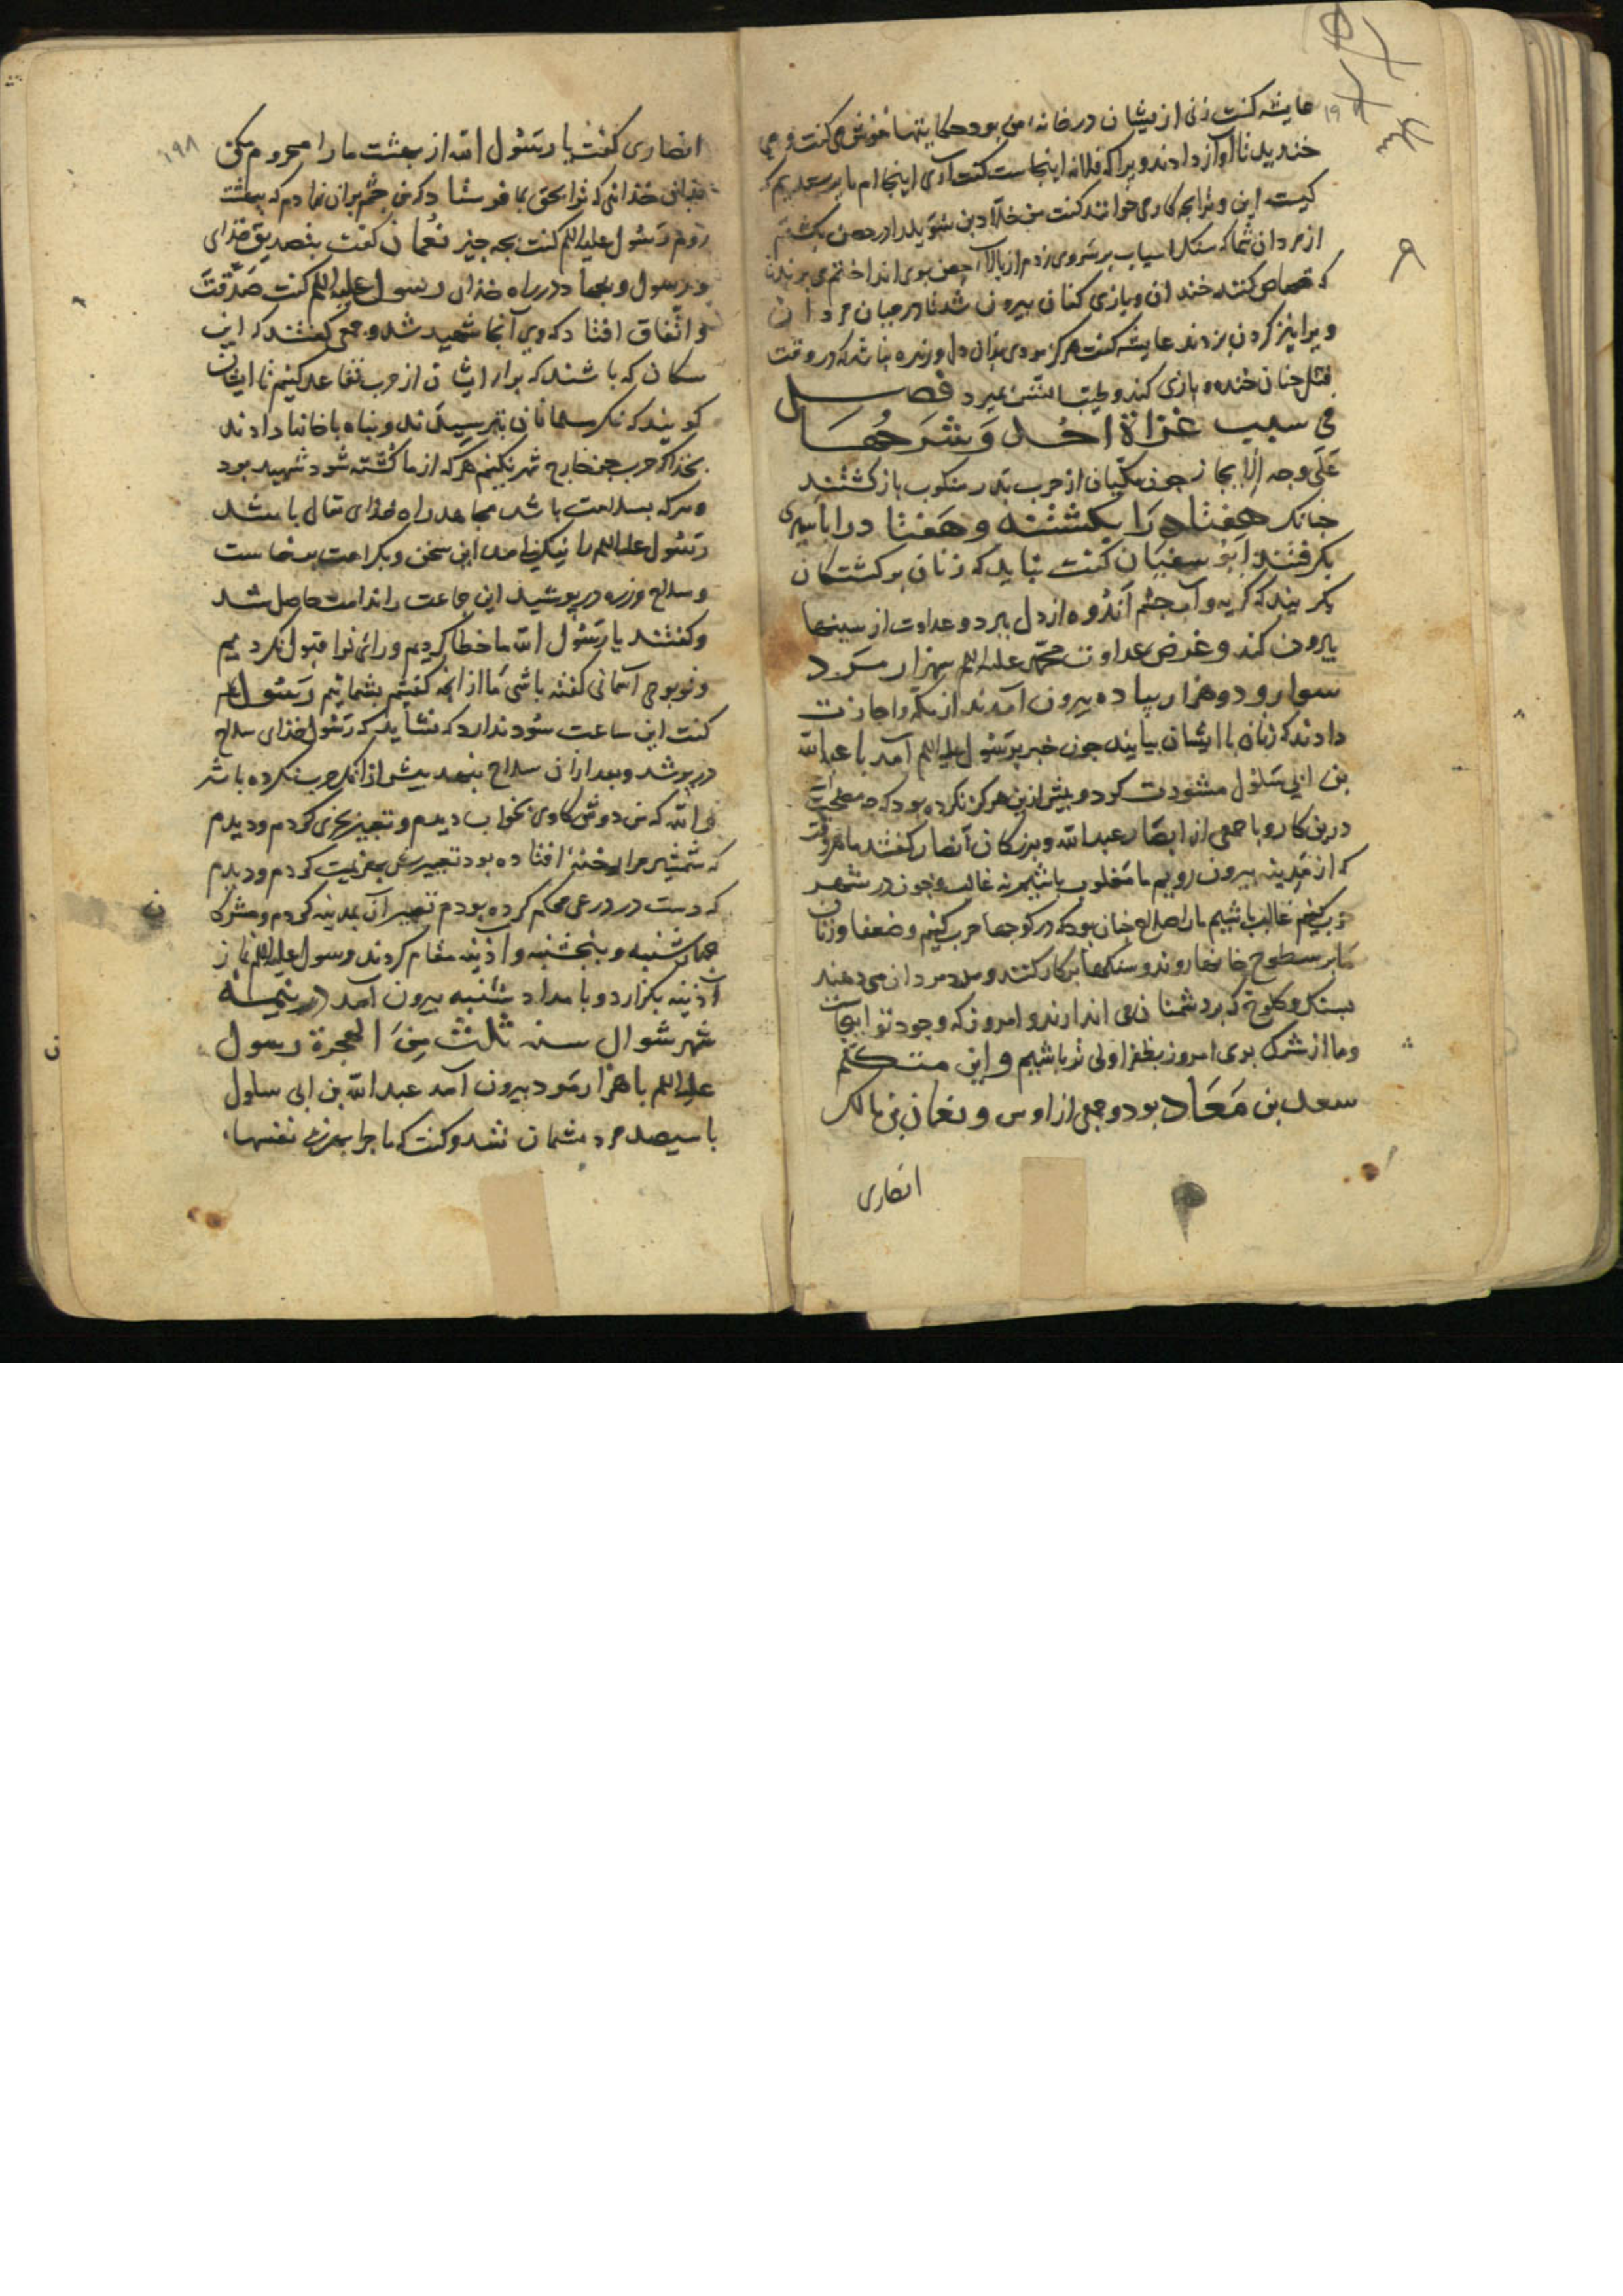 عایشه کفت زنی از یشان در خانه من بود حکایتها خوش می کفت و می
خندید تا آواز دادند ویرا که فلانه اینجاست کفت آری اینجا ام ما پرسیدیم که
کیست این و ترا بجه کار می خوانند کفت من خلاد بن سوید را در حصن بکشتم
از مردان شما که سنک اسیاب بر سر وی زدم از بالا حصن بوی انداختم می برند تا
که قصاص کنند خندان و بازی کنان بیرون شد تا در میان مردان
ویرا نیز کردن بزدند عایشه کفت هرکز بودی بدان دل وزنده نباشد که در وقت
قتل جنان خنده و بازی کند و طیب النفس بمیرد فصل
فی سبب غزاة احد و شرحها
علی وجه الایجاز جون مکیان از حرب بدر منکوب باز کشتند
جنانک هفتاد را بکشتند و هفتاد را باسیری
بکرفتند ابو سفیان کفت نباید که زنان بر کشتکان
بکریند که کریه و آب جشم اندوه از دل ببرد و عداوت از سینها
بیرون کند و غرض عداوت محمد علیه السلم سهزار مرد
سوار و دو هزار پیاده بیرون آمدند از مکه و اجازت
دادند که زنان با ایشان بیایند جون خبر برسول علیه السلم آمد با عبد الله
بن ابی سلول مشورت کرد و بیش ازین هرکز نکرده بود که جه مصلحت
درین کار و با جمعی از انصار عبد الله و بزرکان انصار کفتند ما هر وقت
که از مدینه بیرون رویم ما مغلوب باشیم نه غالب و جون در شهر
حرب کنیم غالب باشیم ما را صلاح جنان بود که در کوجها حرب کنیم و ضعفا و زنان
ما بر سطوح خانها روند و سنکها بر کار کنند و مدد مردان می دهند
بسنک و کلوخ که بر دشمنان می اندازند و امروز که وجود تو اینجاست
و ما از شرک بری امروز بظفر اولی تر باشیم و این متکلم
سعد بن معاد بود و جمعی از اوس و نعمان بن مالک
انصاری
۱۹۸
انصاری کفت یا رسول الله از بهشت ما را محروم مکن
بدان خدائی که ترا بحق بما فرستاد که من جشم بران نهادم که ببهشت
روم رسول علیه السلم کفت بجه جیز نعمان کفت بتصدیق خدای
و رسول و بجهاد در راه خدای رسول علیه السلم کفت صدقت
و اتفاق افتاد که وی آنجا شهید شد و جمعی کفتند که این
سکان که باشند که برابر ایشان از حرب تقاعد کنیم تا ایشان
کویند که نکر مسلمانان بترسیدند و پناه با خانها دادند
بخدا که حرب جز خارج شهر نکنیم هرکه از ما کشته شود شهید بود
و هرکه بسلامت باشد مجاهد راه خدای تعالی باشد
رسول علیه السلم را نیک نیامد این سخن و بکراهت برخاست
و سلاح و زره در پوشید این جماعت را ندامت حاصل شد
و کفتند یا رسول الله ما خطا کردیم و رای ترا قبول نکردیم
و تو بوحی آسمانی کفته باشی ما از انچه کفتیم بشمانیم رسول علیه
کفت این ساعت سود ندارد که نشاید که رسول خدای سلاح
در پوشد و بعد ازان سلاح بنهد بیش از انک حرب نکرده باشد
والله که من دوش کاوی بخواب دیدم و تعبیر بخیری کردم و دیدم
که شمشیر مرا رخنه افتاده بود تعبیرش بهزیمت کردم و دیدم
که دست در درعی محکم کرده بودم تعبیر آن بمدینه کردم و مشرکان
جهارشنبه و پنجشنبه و آذینه مقام کردند و رسول علیه السلم نماز
آذینه بکزارد و بامداد شنبه بیرون آمد در نیمه
شهر شوال سنه ثلث من الهجرة رسول
علیه السلم با هزار مرد بیرون آمد عبد الله بن ابی سلول
با سیصد مرد بشمان شد و کفت که ما جرا بهرزه نفسها